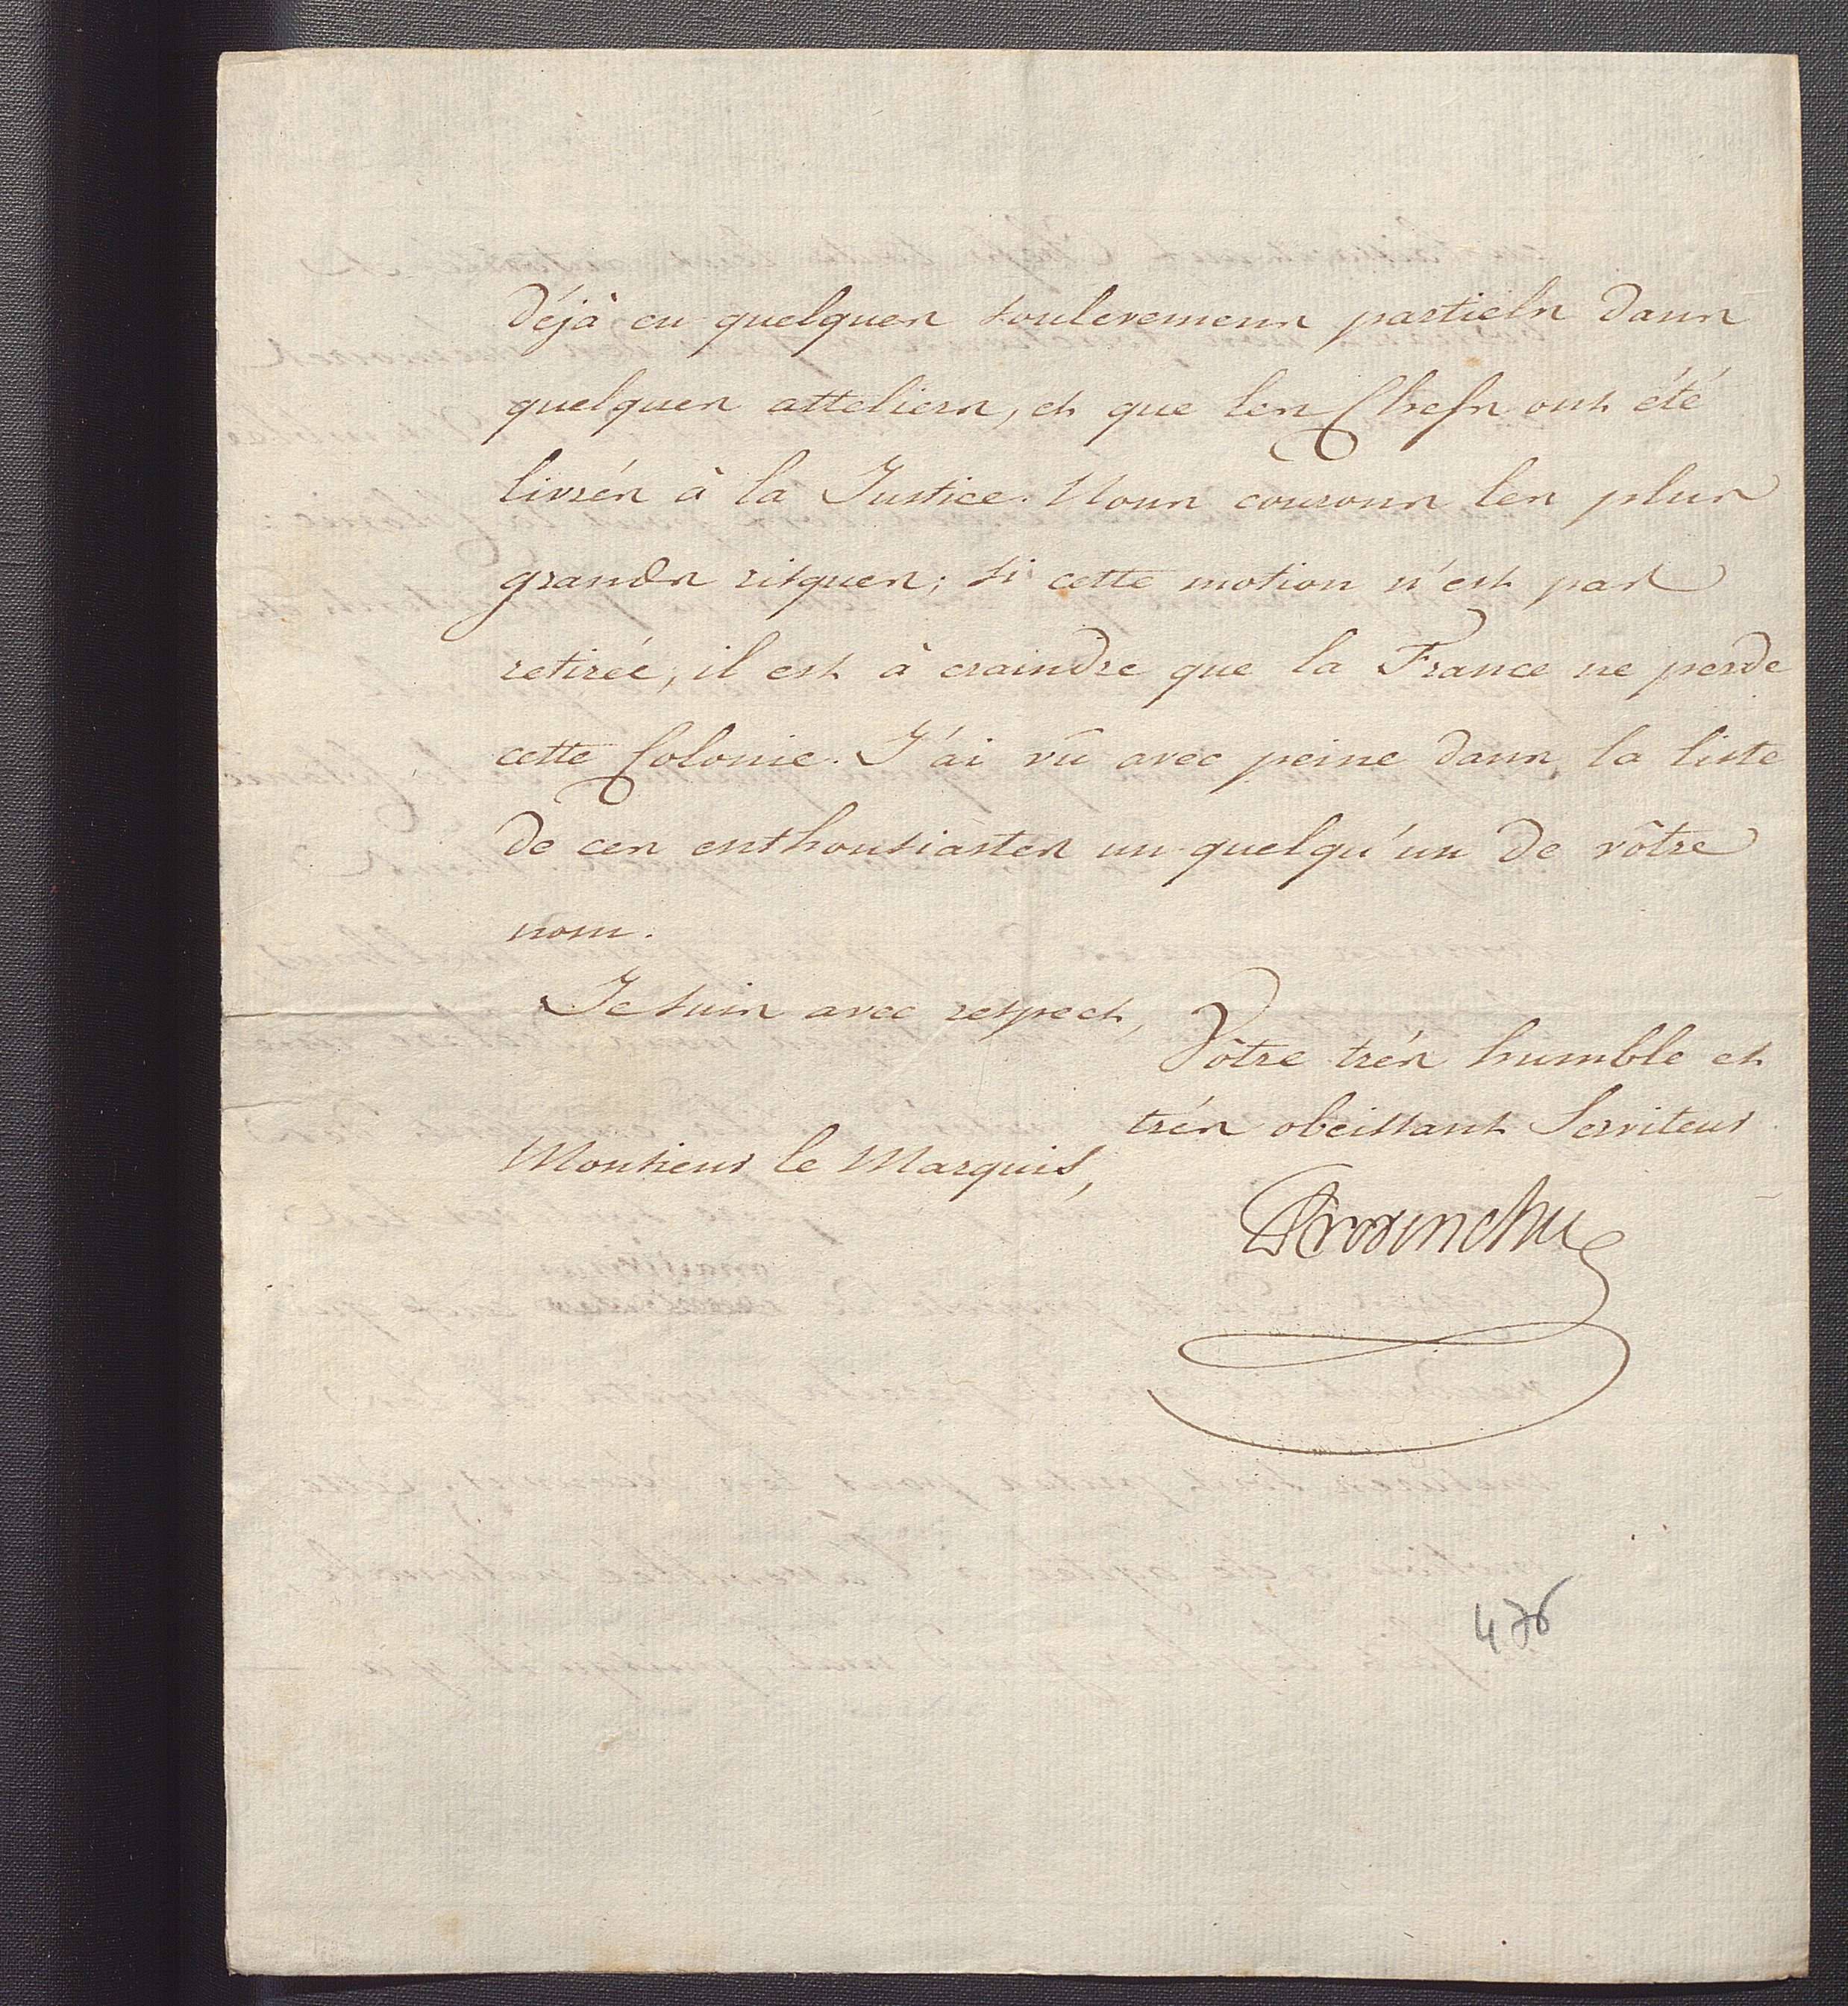 déjà eu quelques soulevemens partiels dans
quelques atteliers, et que les Chefs ont été
livrés à la Justice. Nous courons les plus
grands risques; si cette motion n'est pas
retirée, il est à craindre que la France ne perde
cette Colonie. J'ai vû avec peine dans la liste
de ces enthousiastes un quelqu'un de vôtre
nom.
Je suis avec respect,
Vôtre très humble et
très obeissant Serviteur
Monsieur le Marquis,
476